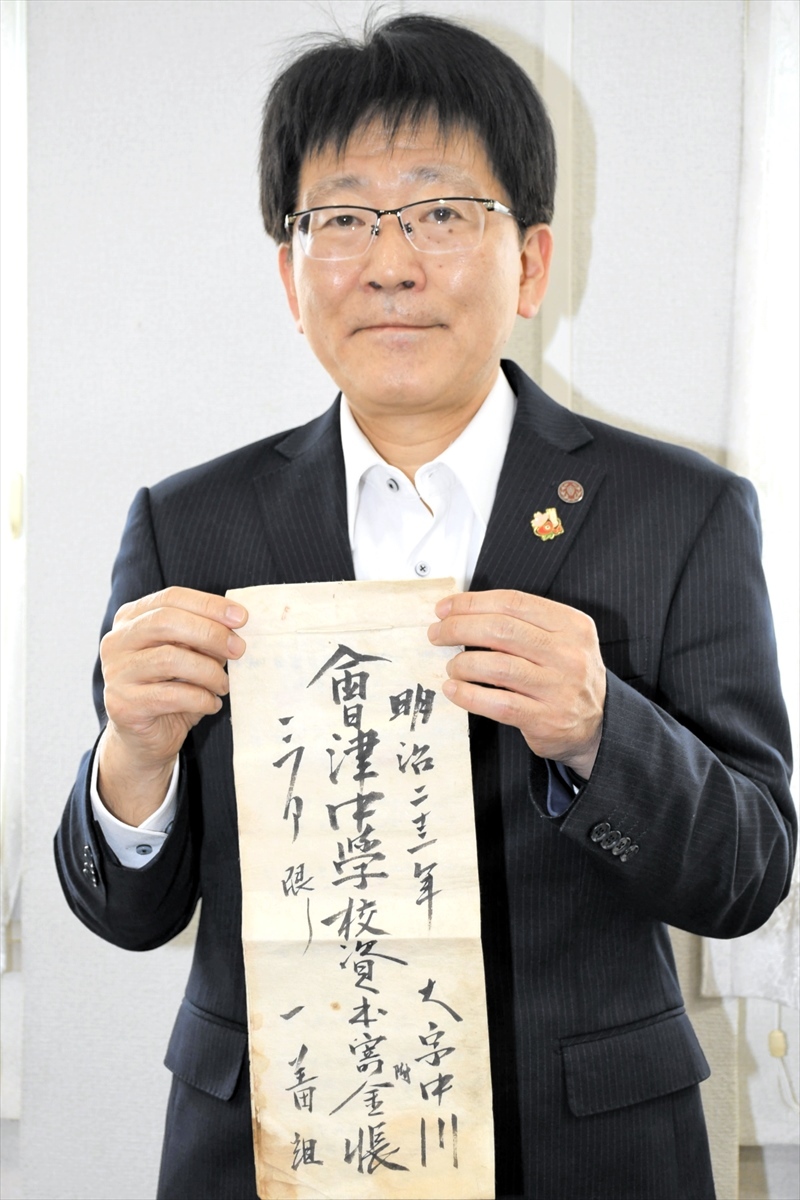 明治二十三年 大字中川
會津中學校資本寄附金帳
三ヶ月限り 一番組